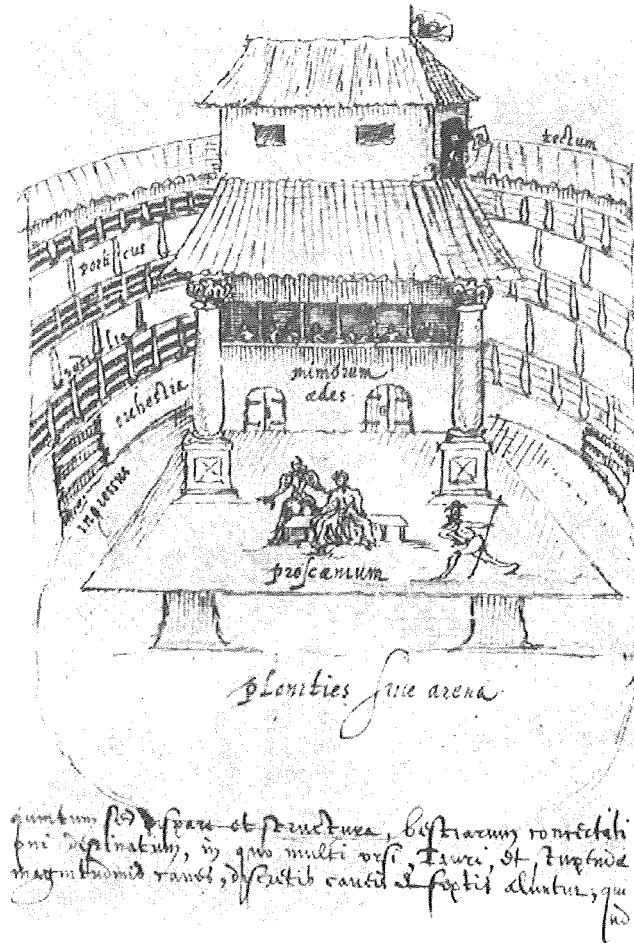 tectum
porticus
sedilia
orchestra
mimorum
ædes
ingressus
proscænium
planities siue arena
quintum sed dispari et structura, bestiarum concertati
oni destinatum, in quo multi ursi, Tauri, et stupendæ
magnitudinis canes, discretis caueis et septis aluntur, qui
ad